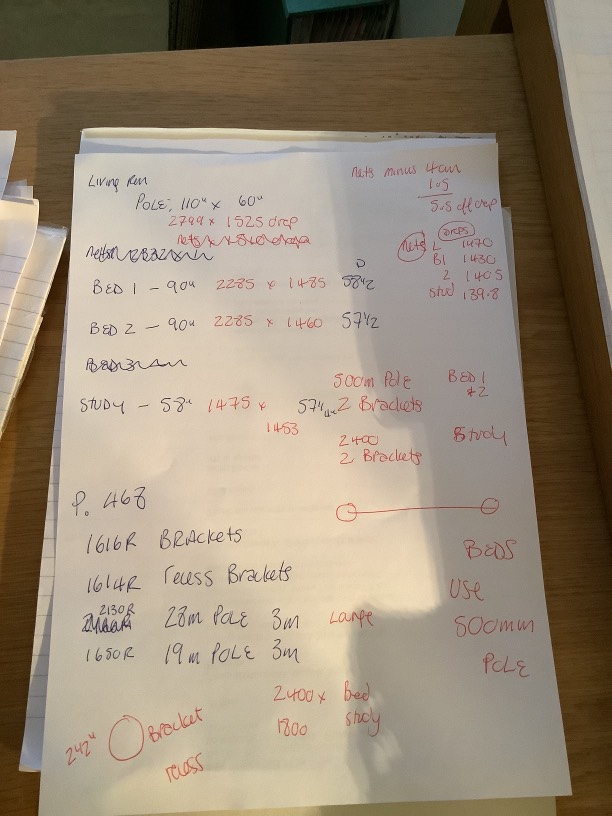 Living Rm
POLE, 110" x 60"
2799 x 1525 drop
nets minus 4cm
1.5
5.5 off drop
nets drops
L 1470
B1 1430
2 1405
Stud 139.8
D
BED 1 - 90" 2285 x 1485 58½
BED 2 - 90" 2285 x 1460 57½
STUDY - 58" 1475 x 57¼"
1453
500m Pole BED 1
2 Brackets +2
2400 Study
2 Brackets
P. 468
1616R BRACKETS
1614R recess Brackets
2130R
28m POLE 3m Large
1650R 19m POLE 3m
BEDS
USE
500mm
POLE
2400 x Bed
1800 study
242" Bracket
recess